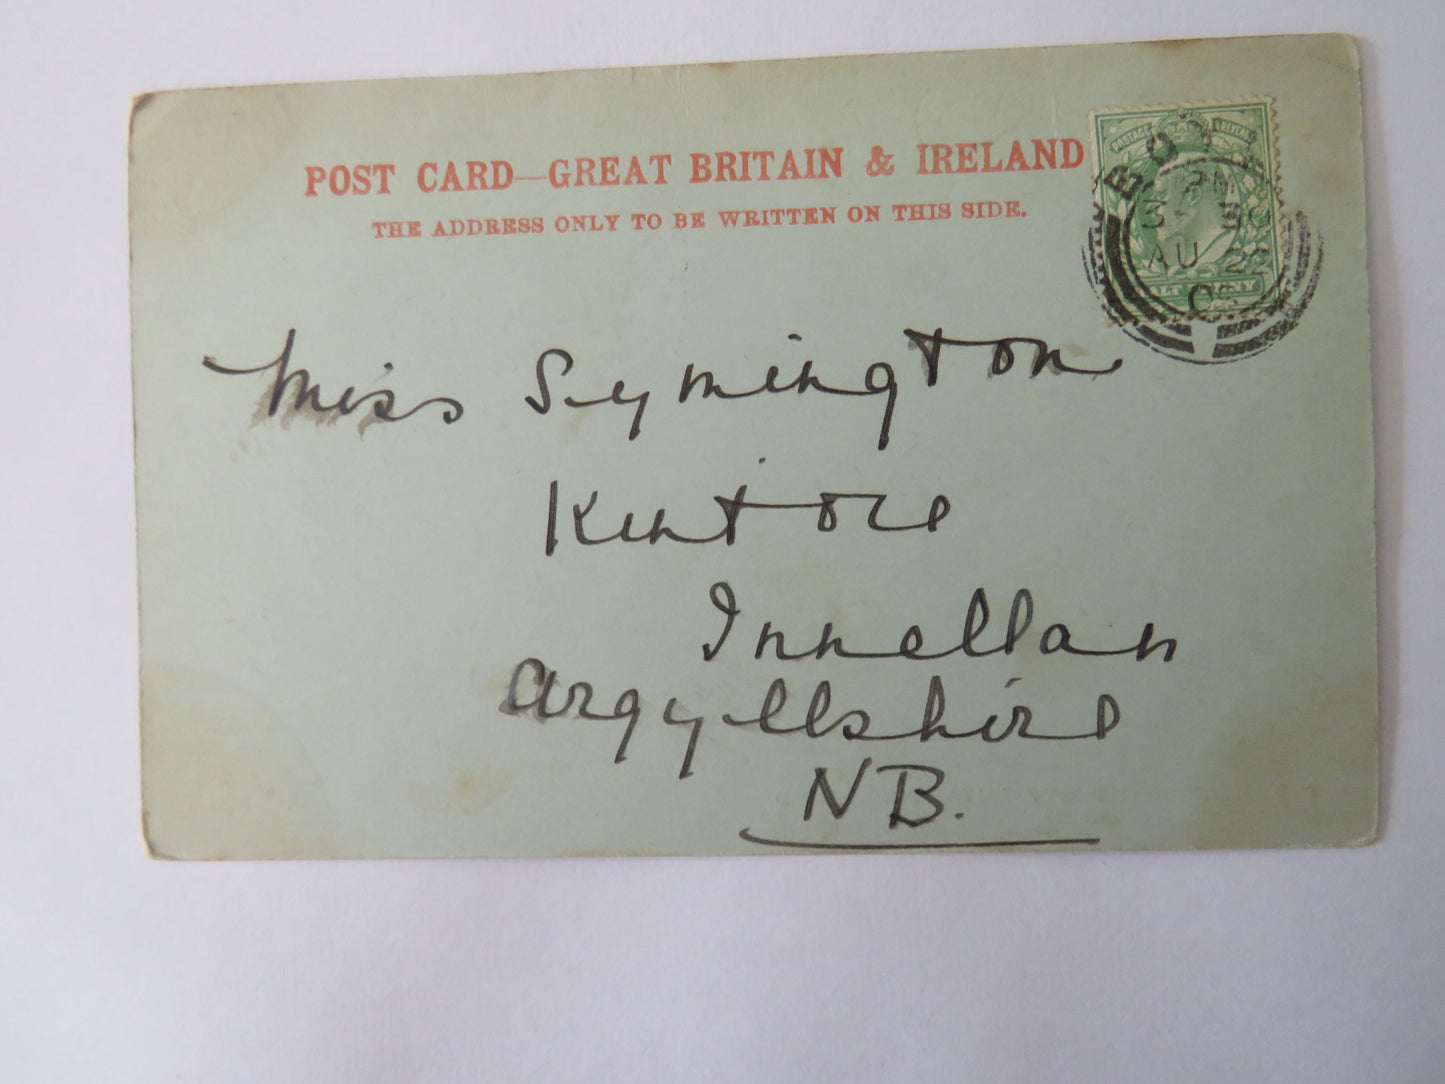 POST CARD—GREAT BRITAIN & IRELAND
THE ADDRESS ONLY TO BE WRITTEN ON THIS SIDE.
POSTAGE
PM
AU 2
Miss Symington
Kintore
Innellan
Argyllshire
NB.